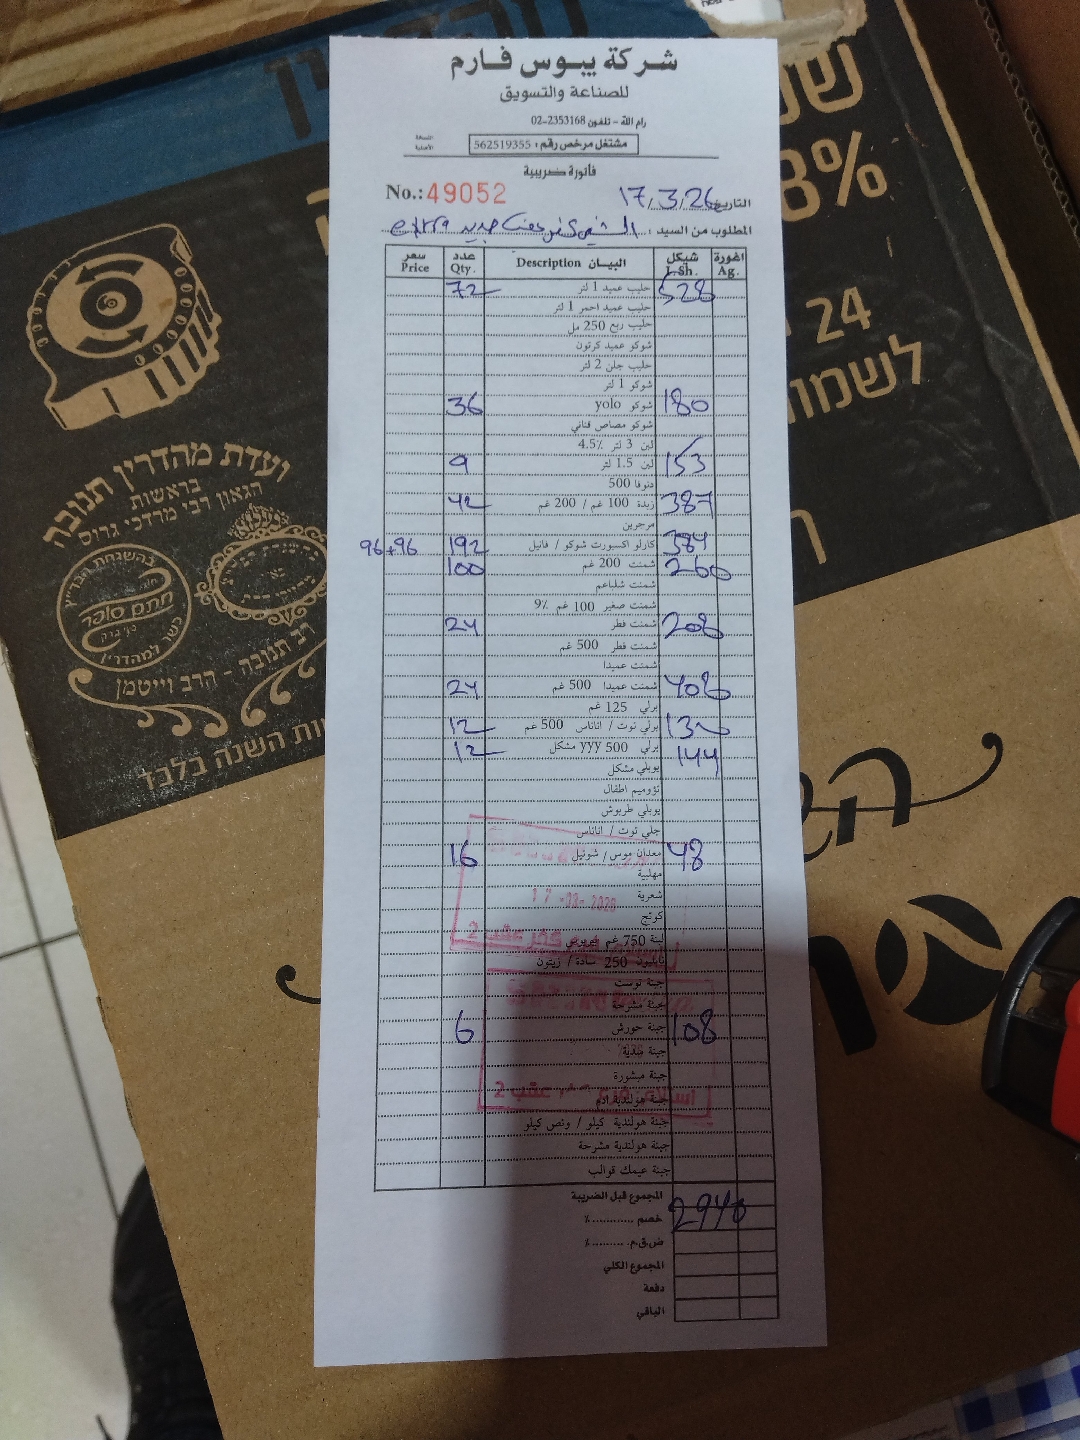 شركة يبوس فارم
للصناعة والتسويق
رام الله - تلفون 02-2353168
مشتغل مرخص رقم: 562519355
النسخة الأصلية
فاتورة ضريبية
No.: 49052
التاريخ 17/3/26
المطلوب من السيد: جديد extra
سعر Price عدد Qty. البيان Description شيكل I.Sh. اغورة Ag.
حليب عميد 1 لتر 72 528
حليب عميد احمر 1 لتر
حليب ربع 250 مل
شوكو عميد كرتون
حليب جلن 2 لتر
شوكو 1 لتر
شوكو yolo 36 180
شوكو مصاص قناني
لبن 3 لتر 4.5٪
لبن 1.5 لتر 9 153
دنوفا 500
زبدة 100 غم / 200 غم 42 387
مرجرين
كارلو اكسبورت شوكو / فانيل 192 96+96 384
شمنت 200 غم 100 260
شمنت شلباعم
شمنت صغير 100 غم 9٪
شمنت فطر 24 208
شمنت فطر 500 غم
شمنت عميدا
شمنت عميدا 500 غم 24 408
برلي 125 غم
برلي توت / اناناس 500 غم 12 132
برلي yyy 500 مشكل 12 144
يوبلي مشكل
تؤوميم اطفال
يوبلي طربوش
جلي توت / اناناس
معدان موس / شوتيل 16 48
مهلبية
شعرية
كوتج
لبنة 750 غم
نابليون 250 سادة / زيتون
جبنة توست
جبنة مشرحة
جبنة حورش 6 108
جبنة
جبنة مبشورة
جبنة هولندية ادم
جبنة هولندية كيلو / ونص كيلو
جبنة هولندية مشرحة
جبنة عيمك قوالب
المجموع قبل الضريبة
خصم ............٪ 2940
ض.ق.م. ..........٪
المجموع الكلي
دفعة
الباقي
عقب 2
عقب 2
ועדת מהדרין תנובה
בראשות
הגאון רבי מרדכי גרוס
בהשגחת הבד"ץ
חתם סופר
למהדרין
רב תנובה - הרב וייטמן
השנה בלבד
8%
24